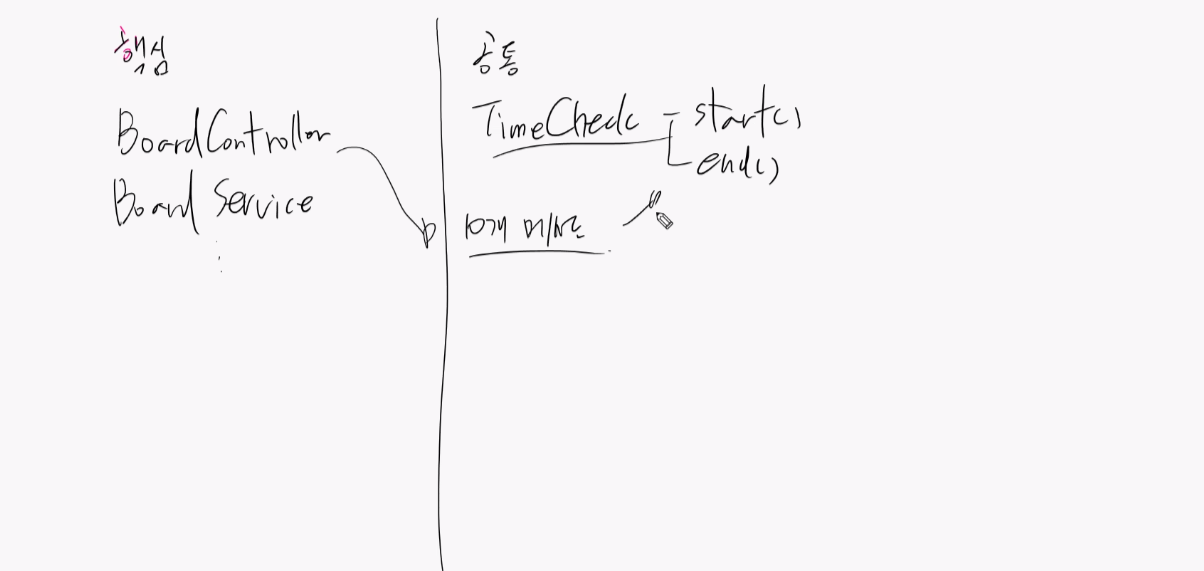 핵심
BoardController
Board Service
공통
TimeCheck
start()
end()
10개 메서드